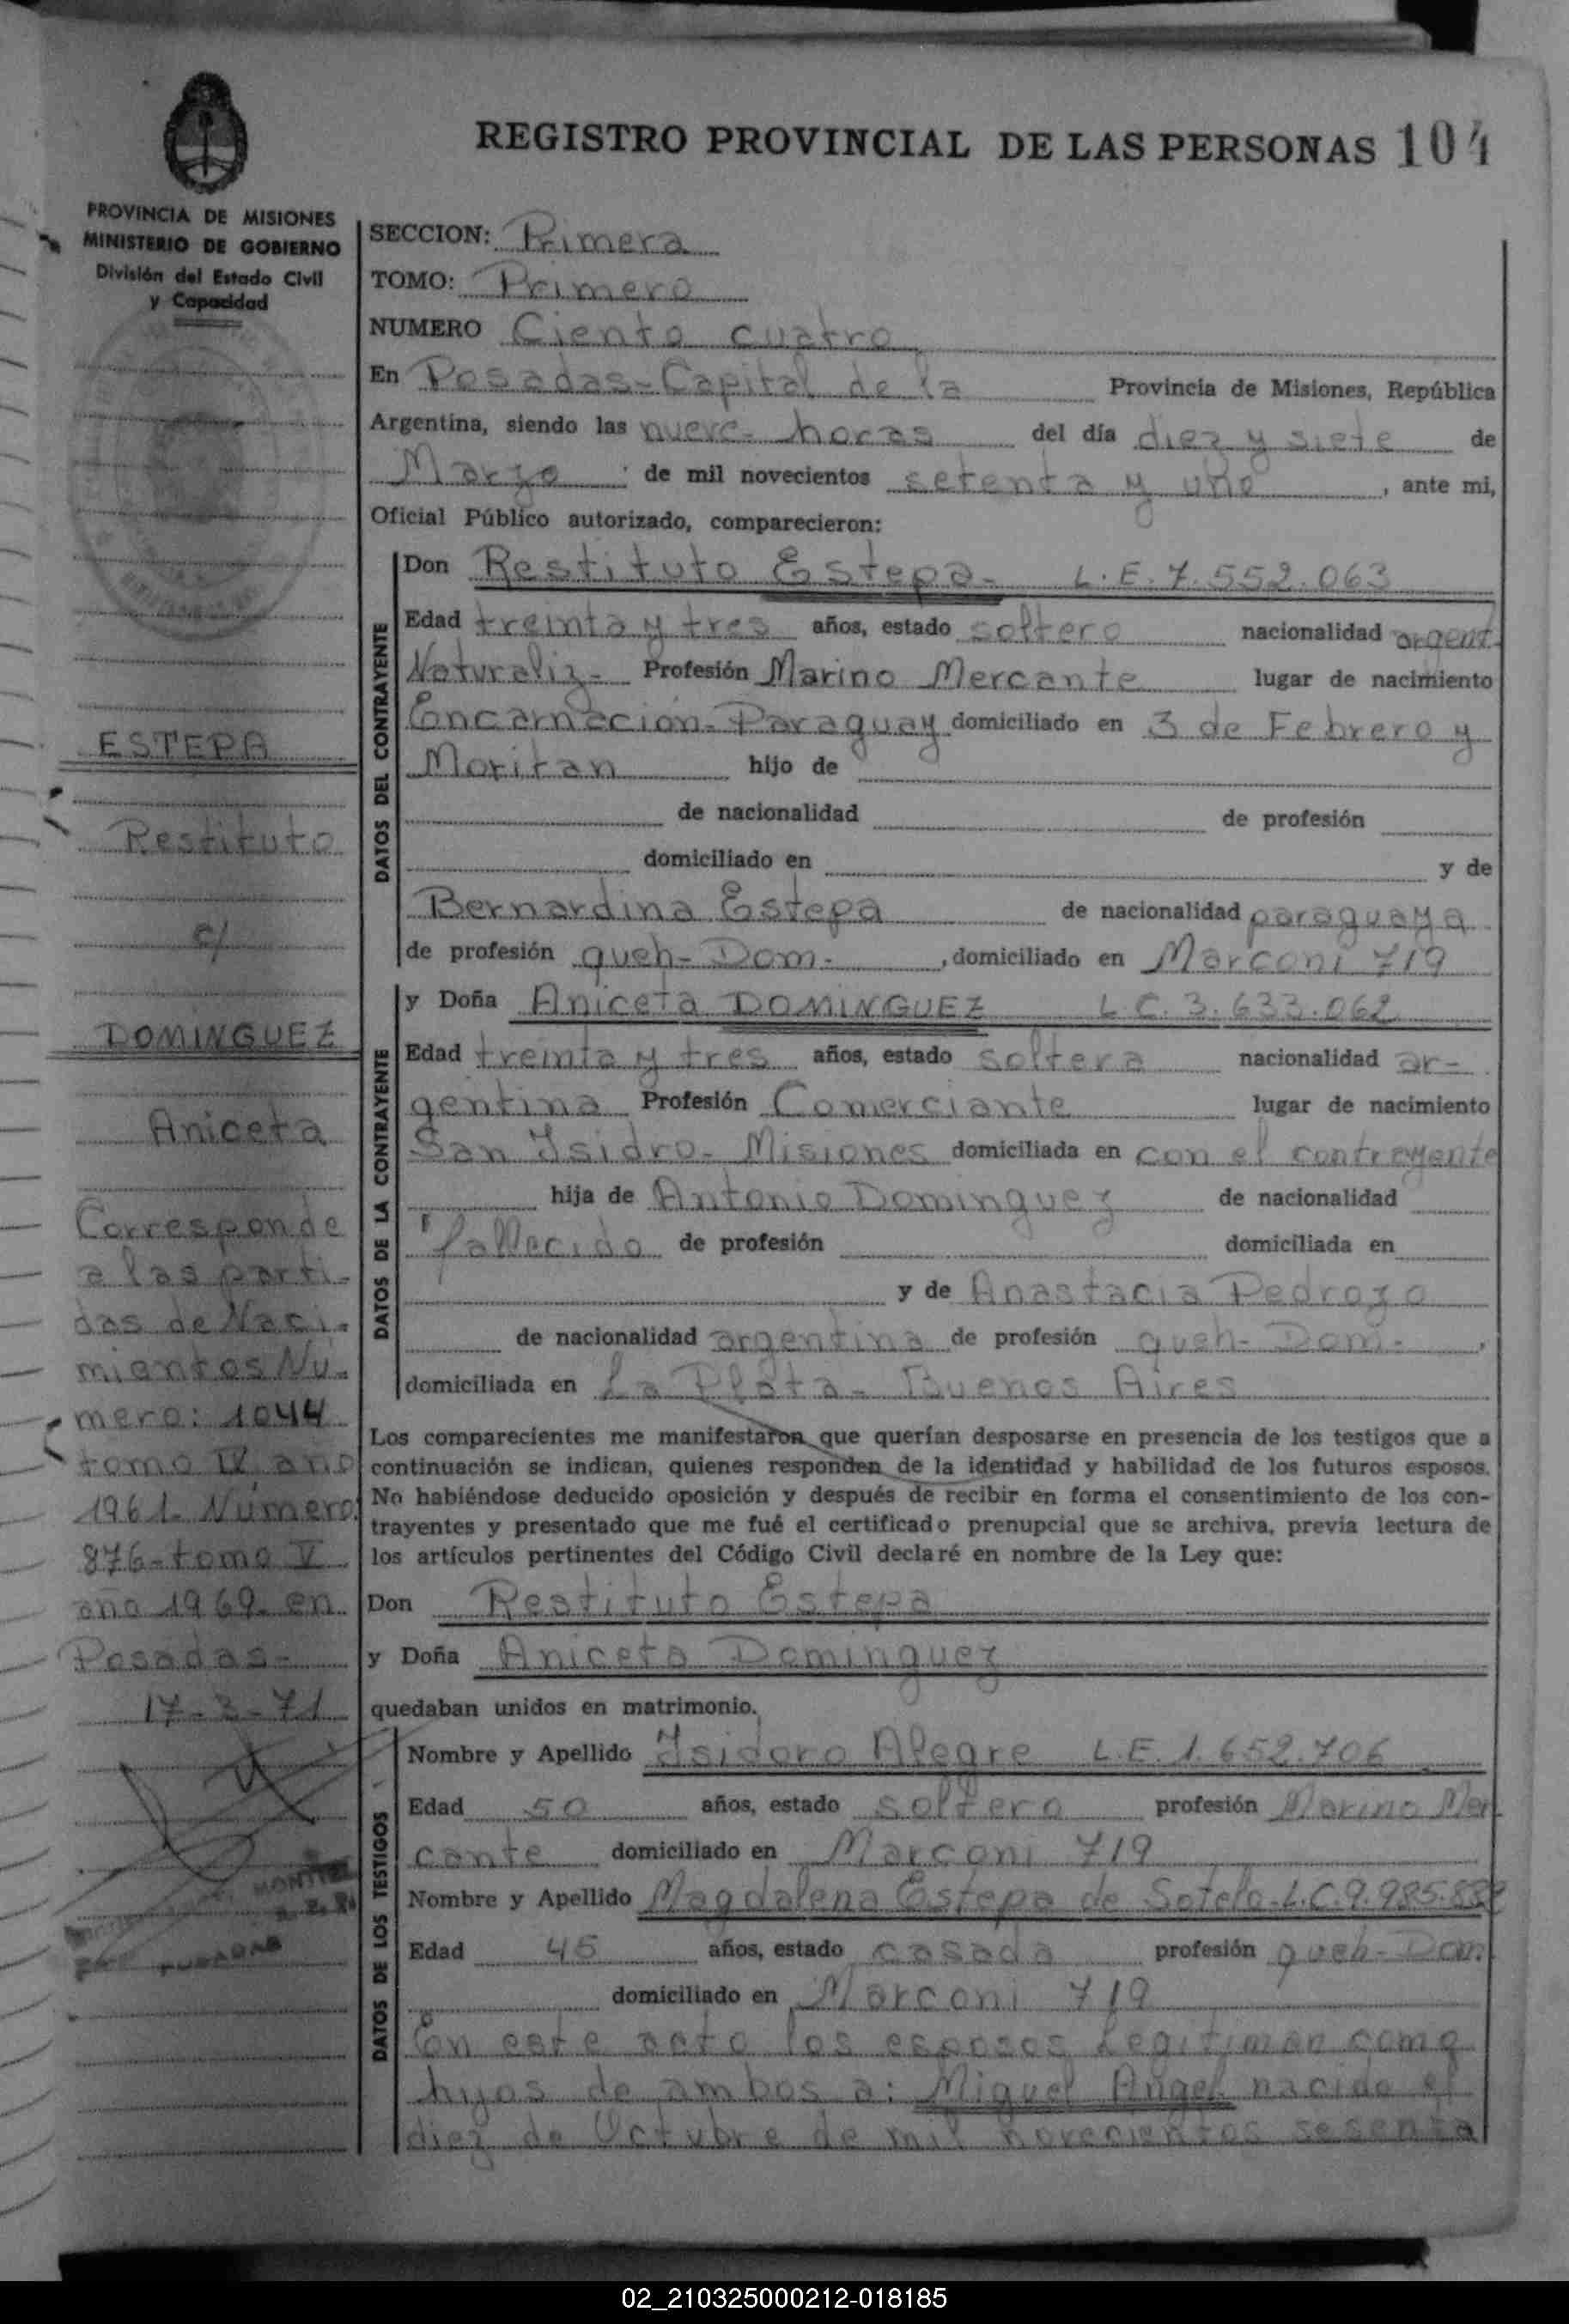 REGISTRO PROVINCIAL DE LAS PERSONAS 104
PROVINCIA DE MISIONES
MINISTERIO DE GOBIERNO
División del Estado Civil
y Capacidad
SECCION: Primera
TOMO: Primero
NUMERO Ciento cuatro
En Posadas-Capital de la Provincia de Misiones, República
Argentina, siendo las nueve horas del día diez y siete de
Marzo de mil novecientos setenta y uno, ante mi,
Oficial Público autorizado, comparecieron:
DATOS DEL CONTRAYENTE
Don Restituto Estepa- L.E. 7.552.063
Edad treinta y tres años, estado soltero nacionalidad argent.
Naturaliz- Profesión Marino Mercante lugar de nacimiento
Encarnación-Paraguay domiciliado en 3 de Febrero y
Moritan hijo de
de nacionalidad de profesión
domiciliado en y de
Bernardina Estepa de nacionalidad paraguaya
de profesión queh-Dom-, domiciliado en Marconi 719
DATOS DE LA CONTRAYENTE
y Doña Aniceta DOMINGUEZ L.C. 3.633.062
Edad treinta y tres años, estado soltera nacionalidad ar-
gentina Profesión Comerciante lugar de nacimiento
San Isidro- Misiones domiciliada en con el contrayente
hija de Antonio Dominguez de nacionalidad
fallecido de profesión domiciliada en
y de Anastacia Pedrozo
de nacionalidad argentina de profesión queh-Dom-,
domiciliada en La Plata- Buenos Aires
Los comparecientes me manifestaron que querían desposarse en presencia de los testigos que a
continuación se indican, quienes responden de la identidad y habilidad de los futuros esposos.
No habiéndose deducido oposición y después de recibir en forma el consentimiento de los con-
trayentes y presentado que me fué el certificado prenupcial que se archiva, previa lectura de
los artículos pertinentes del Código Civil declaré en nombre de la Ley que:
Don Restituto Estepa
y Doña Aniceta Dominguez
quedaban unidos en matrimonio.
DATOS DE LOS TESTIGOS
Nombre y Apellido Isidoro Alegre L.E. 1.652.706
Edad 50 años, estado soltero profesión Marino Mer
cante domiciliado en Marconi 719
Nombre y Apellido Magdalena Estepa de Sotelo-L.C.9.985.
Edad 45 años, estado casada profesión queh-Dom.
domiciliado en Marconi 719
En este acto los esposos legitiman como
hijos de ambos a: Miguel Angel nacido el
diez de Octubre de mil novecientos sesenta
ESTEPA
Restituto
c/
DOMINGUEZ
Aniceta
Corresponde
a las parti-
das de Naci-
mientos Nú-
mero: 1044
tomo IV año
1961. Número
876-tomo V
año 1969 en
Posadas-
17-3-71
POSADAS
02_210325000212-018185